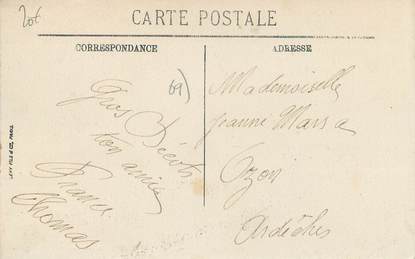 20€
CARTE POSTALE
CORRESPONDANCE
ADRESSE
69)
Gros Bécots
ton amie
France
Thomas
Mademoiselle
Jeanne Marsa
Ozon
Ardèche